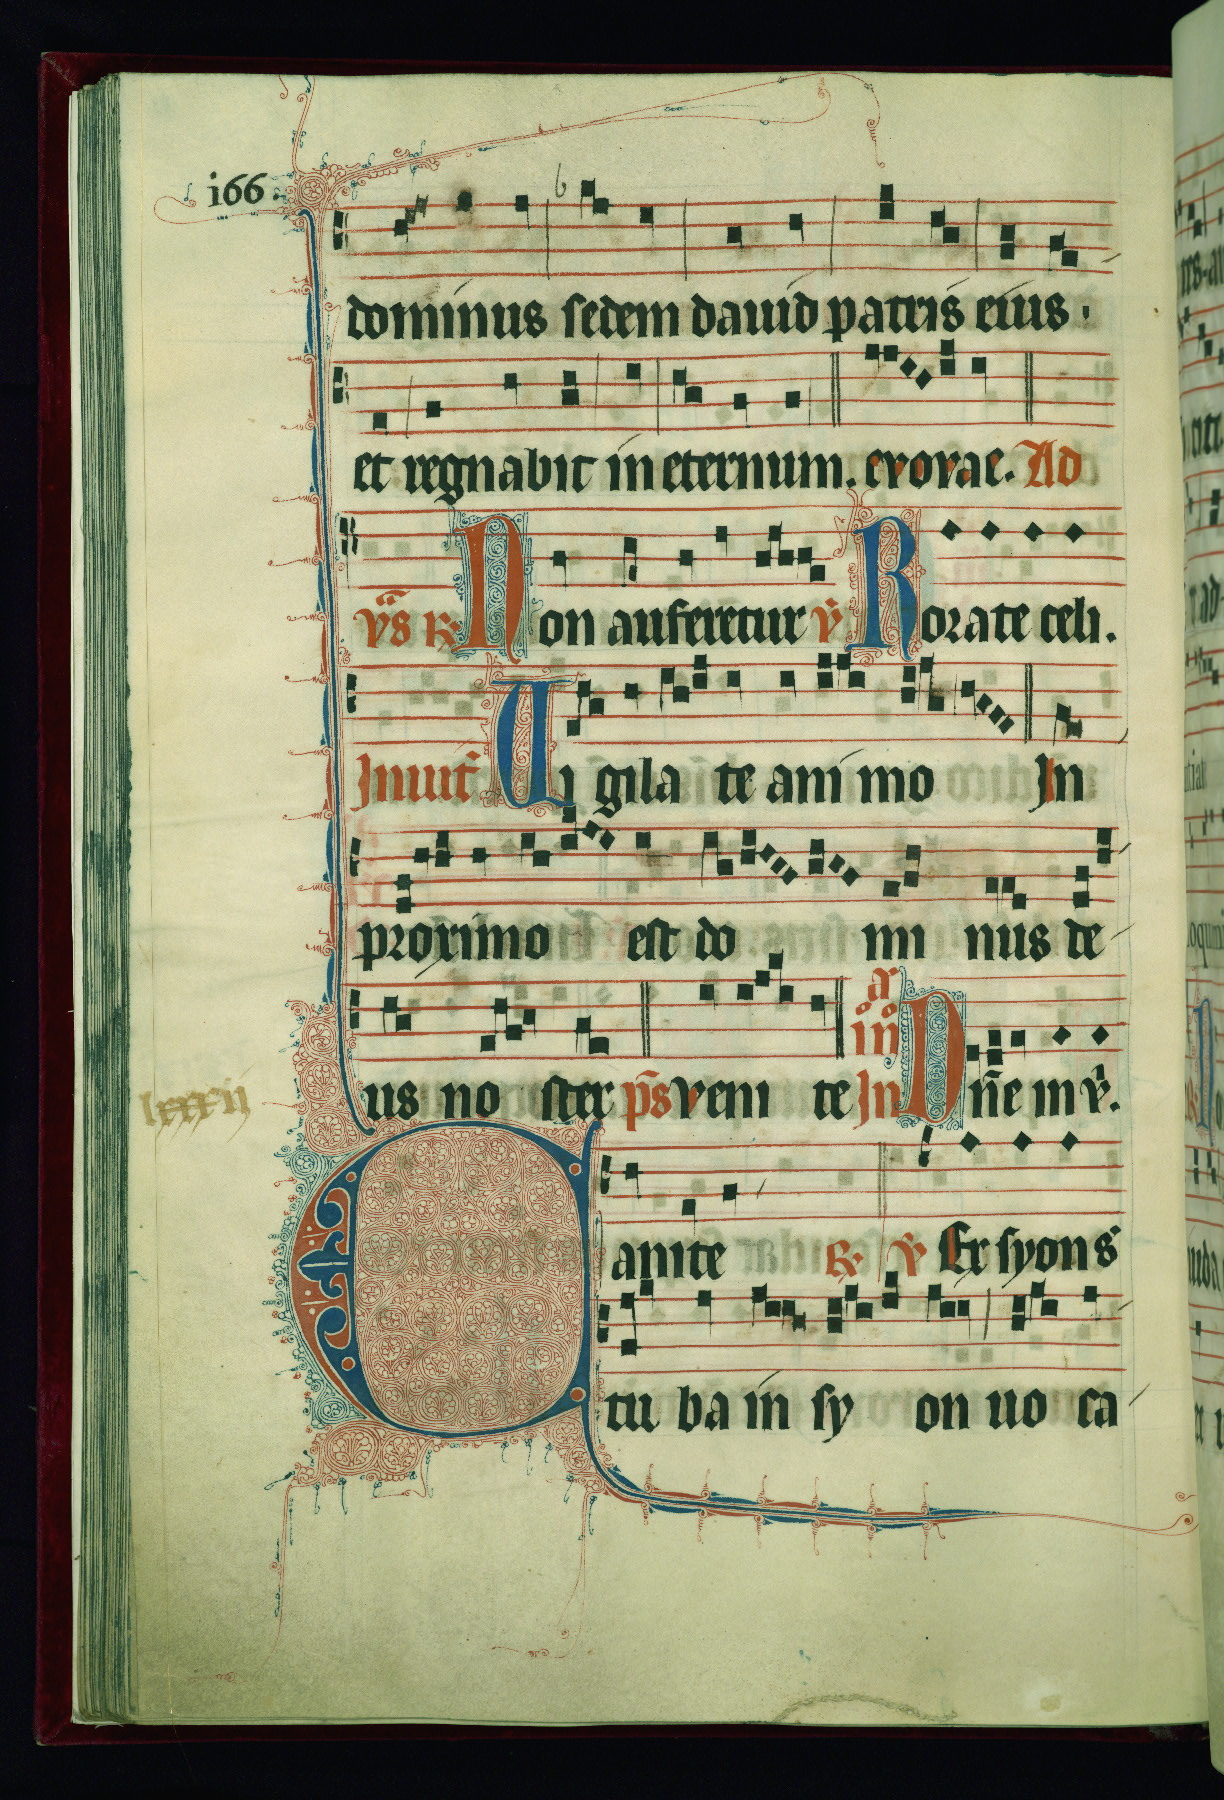 i66
dominus sedem dauid patris eius.
et regnabit in eternum. evovae. Ad
vs̄ ℟ Non auferetur ℣ Rorate celi.
Inuit̄ Uigilate animo In
proximo est dominus de
us noster p̄s venite In Dn̄e in ℣.
lxxxii
Canite ℟ ℣ Ex syon s̄
tuba in syon uoca